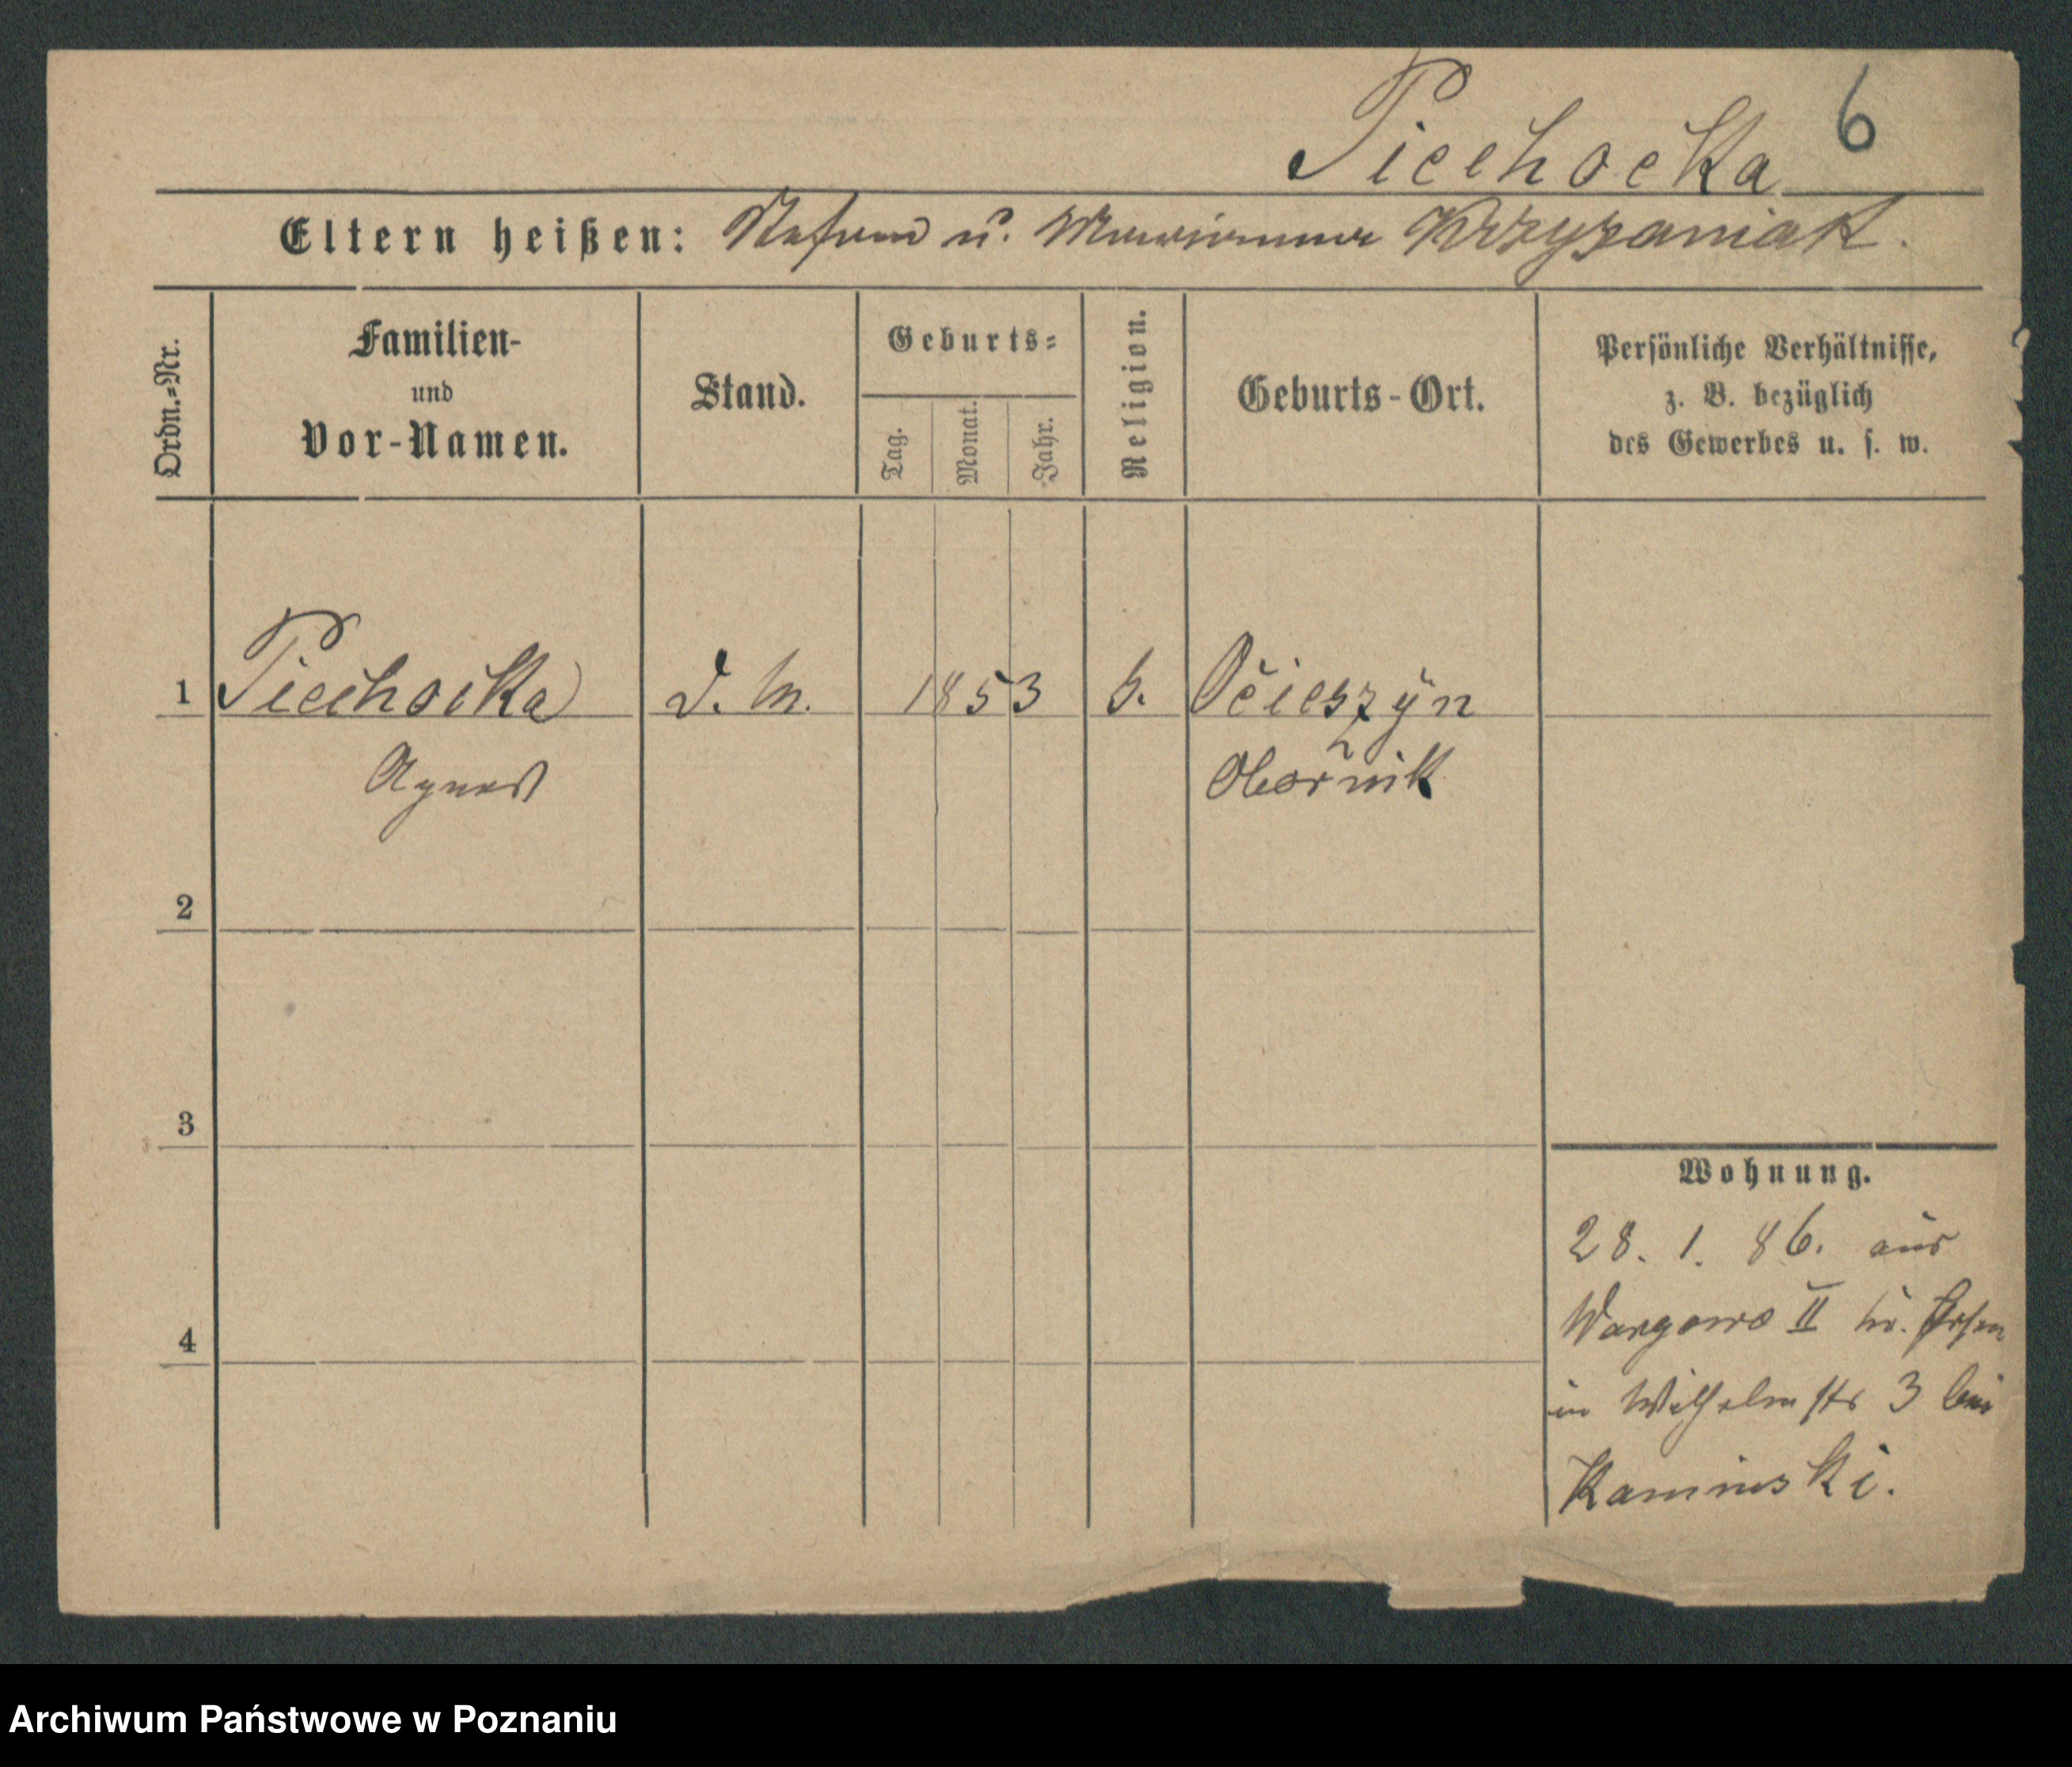 Piechocka 6
Eltern heißen: Stefan u. Marianna Krzyzaniak.
Ordn.=Nr.
Familien- und Vor-Namen.
Stand.
Geburts=
Tag.
Monat.
Jahr.
Religion.
Geburts-Ort.
Persönliche Verhältnisse,
z. B. bezüglich
des Gewerbes u. s. w.
1 Piechocka D. M. 1853 k. Ocieszyn
Agnes Obornik
2
3
4
Wohnung.
28. 1. 86. aus
Wargowo II
in Wilhelmstr 3 bei
Kaminski.
Archiwum Państwowe w Poznaniu